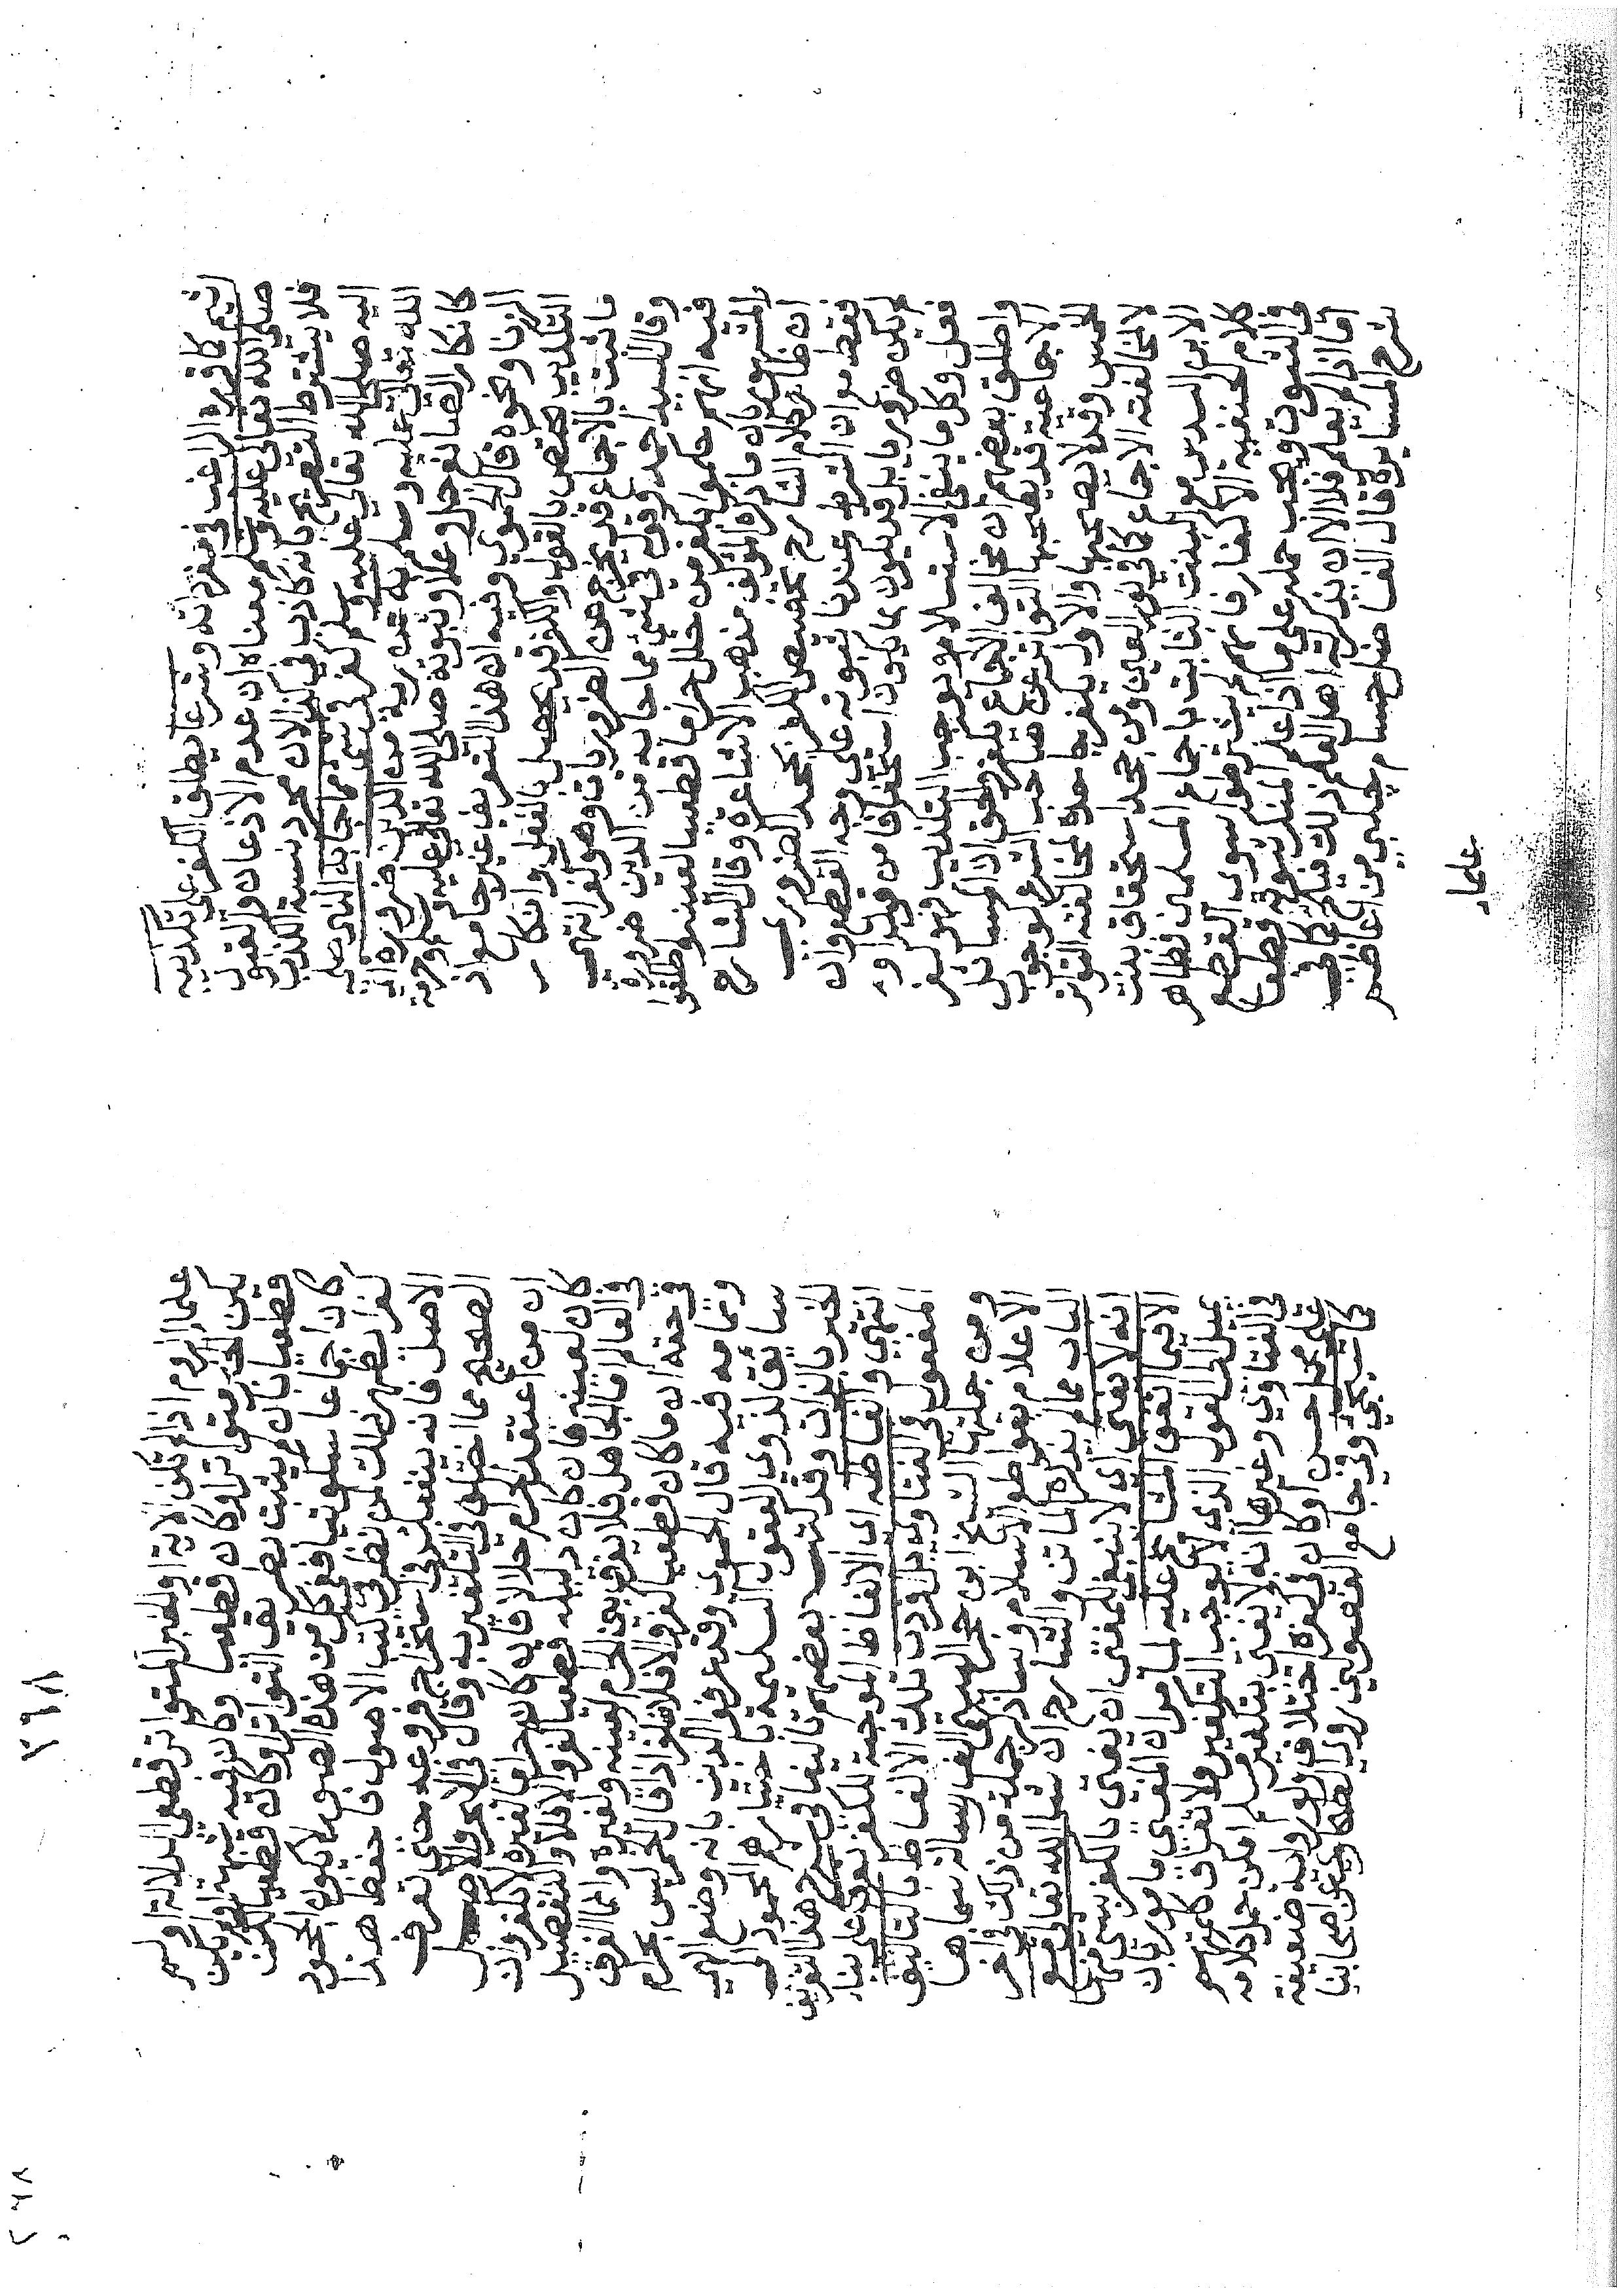 الراغب في مفرداته وشرعا يطلق الكفر على تكذيبه
صلى الله تعالى عليه وسلم معناه ان عدم الاذعان والقبول
فلا يشترط التصريح بانه كاذب في كذا لان مجرد نسبة الكذب
اليه صلى الله تعالى عليه وسلم كفر في شيء مما جاء به النبي صلى
الله تعالى عليه وسلم به عن ربه من الدين ضرورة
كانكار الصانع جل وعلا ونبوته صلى الله تعالى عليه وسلم وحرمة
الزنا ونحوه قال الحموي وفيه ان هذا التعريف غير جامع اذ
التكذيب مختص بالقول والكفر قد يحصل بالفعل وانكار
ما ثبت بالاجماع قد يخرج عن الضروريات وهو كفر انتهى
وقال السيد احمد وقوله في شيء مما جاء به من الدين ضرورة
فيه انهم حكموا بكفر من حراما قطعيا لعينه
بان ما ذكره المؤلف مذهب الاشاعرة وقال الشارح
ان ظاهر كلام الشارح تخصيص الكفر بجحد الضروري
فقط مع ان الشرط عندنا ثبوته على وجه القطع وان
لم يكن ضروريا بل قد يكون بما يكون استخفافا من قول او
فعل وكل ما ينفي الاستسلام يوجب التكذيب فهو كفر
واطلق بعضهم ان مخالف الاجماع يكفر والحق ان المسائل
الاجماعية قد يصحبها التواتر عن صاحب الشرع كوجوب
الخمس وقد لا يصحبها والاول يكفر جاحده لمخالفته التواتر
لا لمخالفته الاجماع كما في نور العين ومن جحد استحقاق بنت
الابن السدس مع البنت الثابت باجماع المسلمين فظاهر
كلام الحنفية الاكفار فانهم لم يشترطوا سوى القطع
في الثبوت ويجب حمله على ما اذا علم المنكر ثبوته قطعا
اما اذا لم يعلم فلا الا ان يذكر له اهل العلم ذلك فيلج كما في
شرح المسايرة قال الفاضل حسام جلبي من اعاظم
علماء
٣٩٨
علماء الروم اذا لم تكن الاية او الخبر المتواتر قطعي الدلالة او لم
يكن الخبر متواترا او كان قطعيا وكان فيه شبهة او لم يكن
كان اجماعا سكوتيا ففي كل من هذه الصور لا يكون الجحود
كفرا يظهر ذلك لمن نظر في كتب الاصول فاحفظ هذا
الاصل فانه ينفعك في استخراج فروعه حتى تعرف
الصحيح مما اختلف في التكفير به وقال في البحر والاصل
ان من اعتقد الحرام حلالا فان كان حراما لغيره لا يكفر وان
كان لعينه فان كان دليله قطعيا كفر والا فلا والتفصيل
في العالم اما الجاهل فلا يفرق بين الحرام لعينه ولغيره وانما الفرق
في حقه ان ما كان قطعيا كفر والا فلا فلو اذا قال الخمر ليس بحرام
وتمامه فيه قال الحموي وقد عرفوا الدين بانه وضع الهي
سائق لذوي العقول السليمة باختيارهم المحمود الى
الخير بالذات وقد كتب بعضهم تاليفا في شرح هذا التعريف
انتهى والفاظه اي الالفاظ الموجبة للكفر تعرف على بناء
المفعول في الفتاوى بل افردت تلك الالفاظ بالتاليف
ومن جملتها الشيخ ابن حجر الهيتمي الف رسالة سماها
الاعلام بقواطع الاسلام وساذكر جملة من ذلك في اخر
الباب مما لم يذكره الماتن والشارح ان شاء الله تعالى مع
انه لا يفتى اي لا ينبغي للمفتي ان يفتي بالكفر بشيء منها
الا فيما اتفق المشايخ عليه لما مر ان المفتي مامور بان
يميل الى القول الذي لا يوجب التكفير ولا تفاق كلمتهم
في الفتاوى وغيرها انه لا يفتى بتكفير مسلم امكن حمل كلامه
على محمل حسن او كان في كفره اختلاف ولو رواية ضعيفة
كما سيجيء وفي جامع الفصولين روى الطحاوي عن اصحابنا